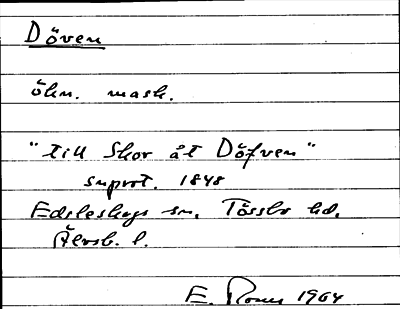 Döven
ökn. mask.
"till Skor åt Döfven"
snprot. 1848
Edsleskogs sn. Tössbo hd.
Älvsb. l.
E. 1964